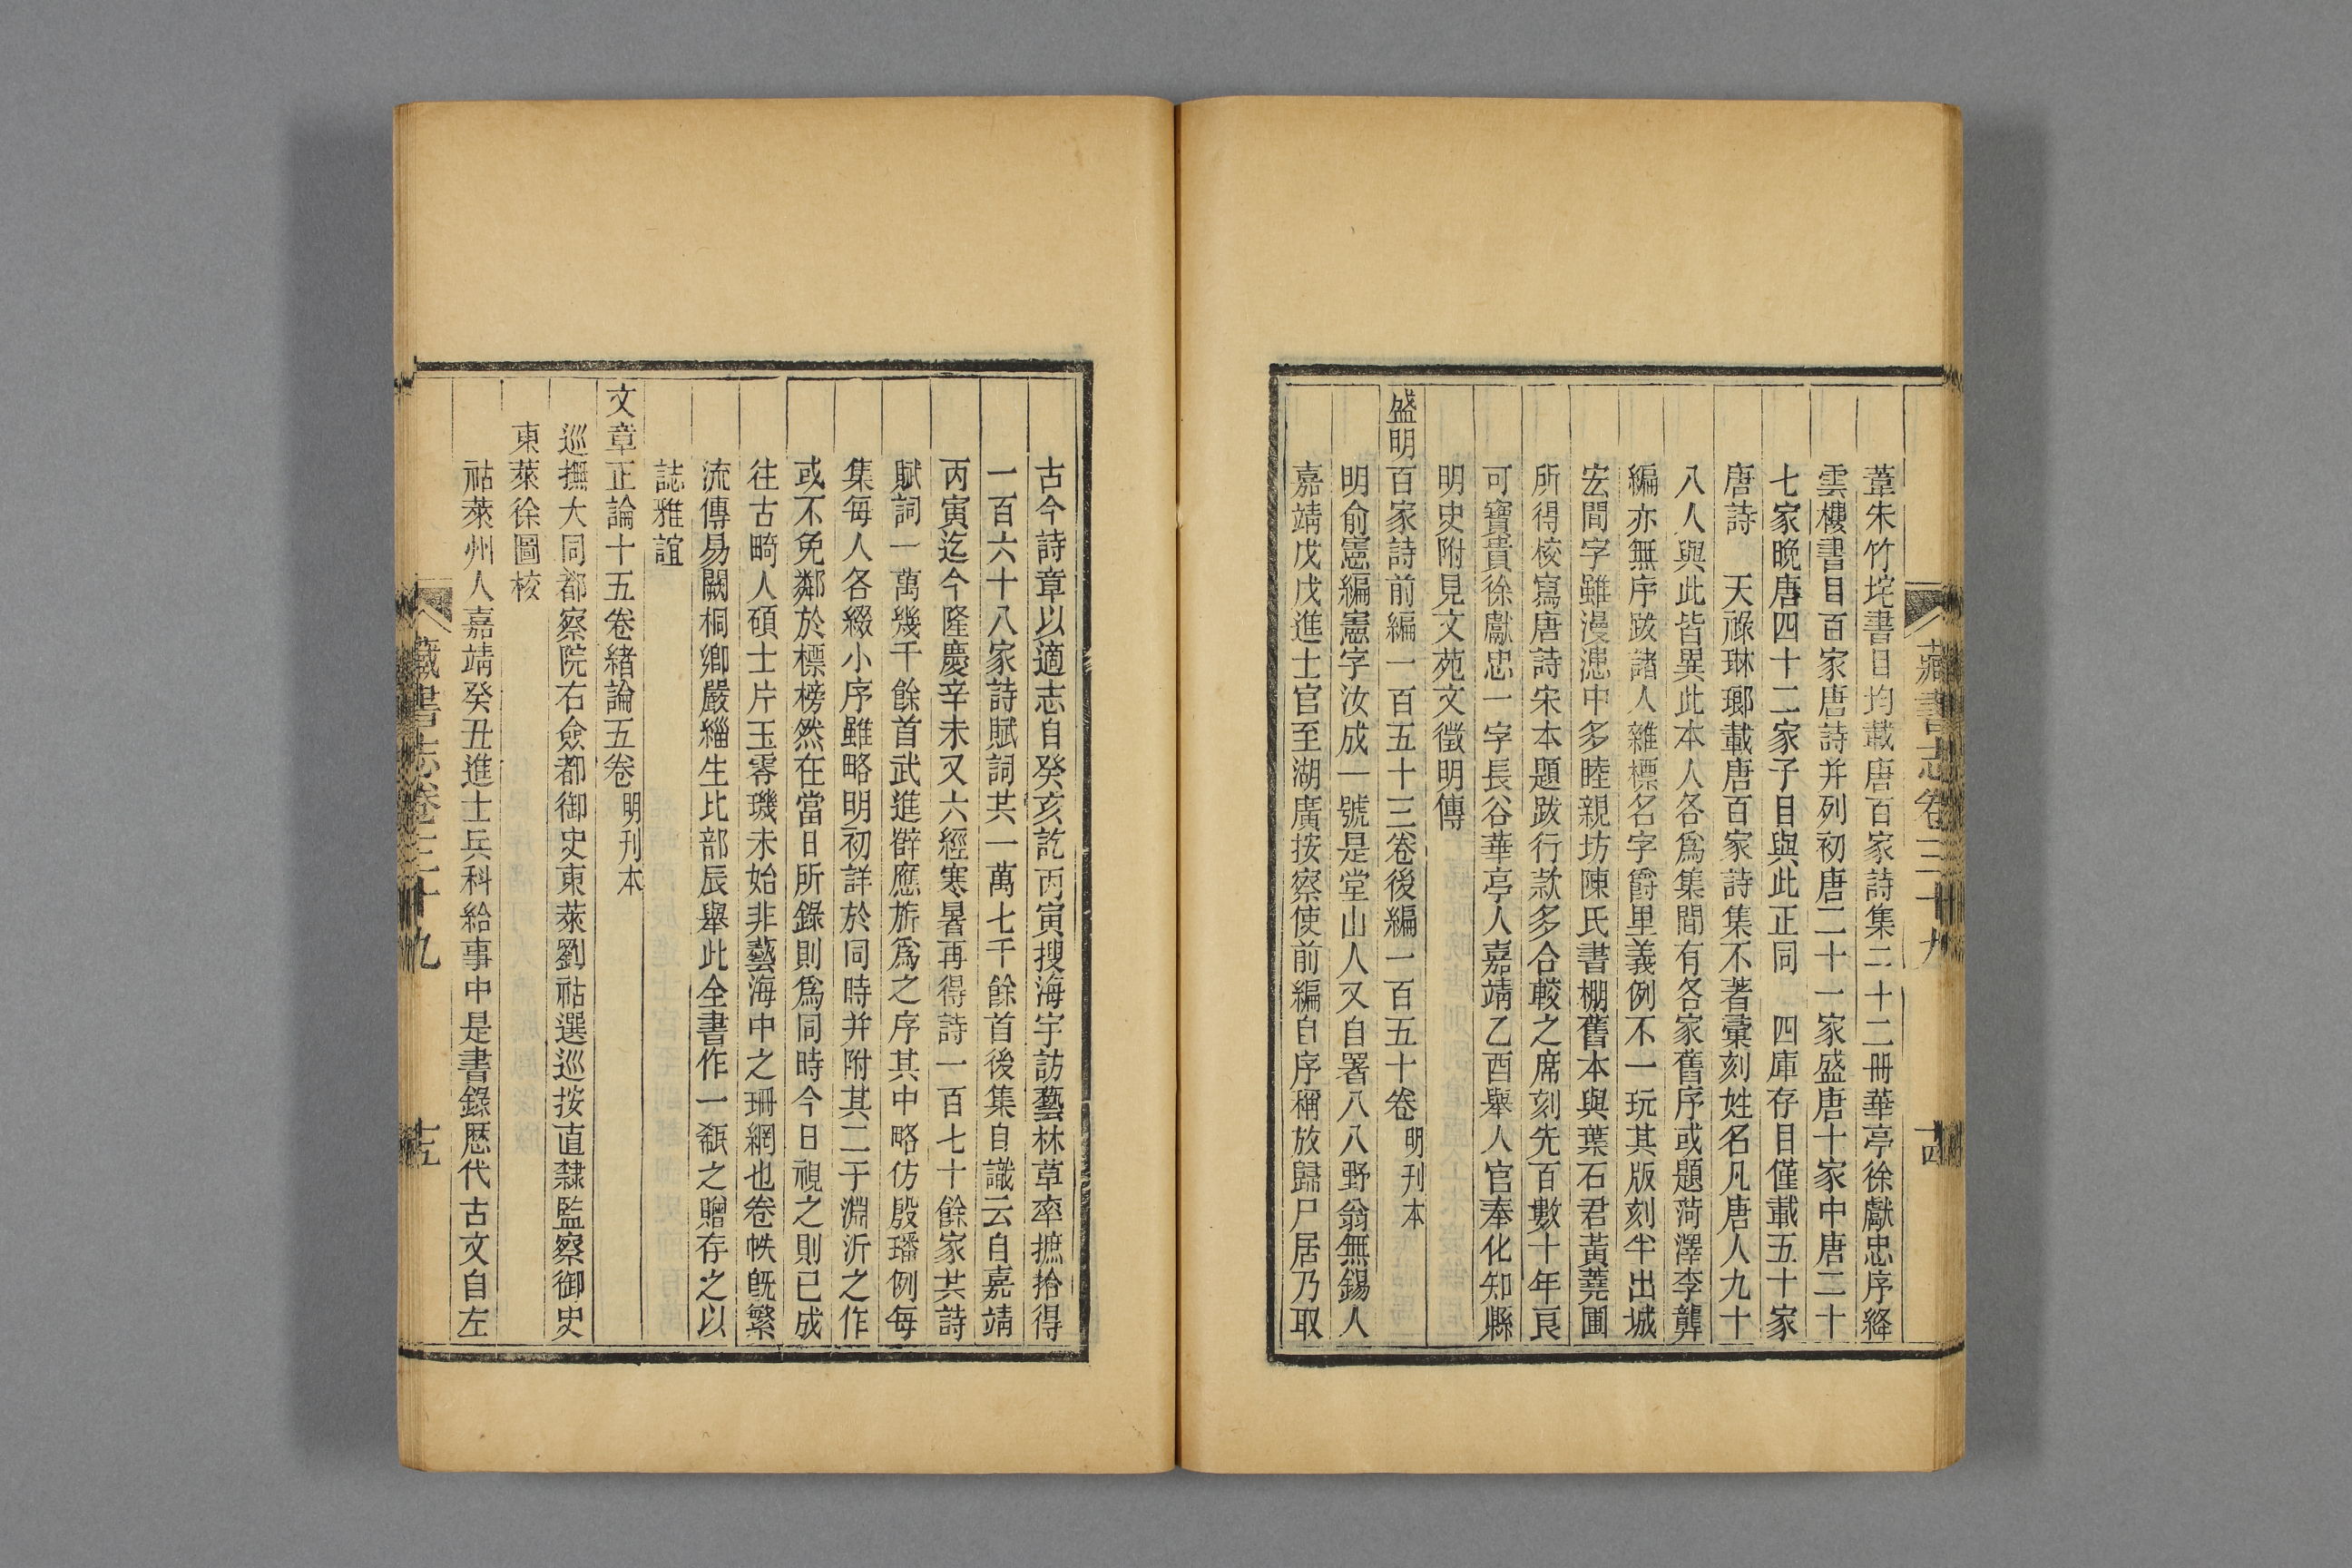 藏書志卷三十九
十四
葦朱竹垞書目均載唐百家詩集二十二冊華亭徐獻忠序絳
雲樓書目百家唐詩并列初唐二十一家盛唐十家中唐二十
七家晚唐四十二家子目與此正同　四庫存目僅載五十家
唐詩　天祿琳瑯載唐百家詩集不著彙刻姓名凡唐人九十
八人與此皆異此本人各爲集間有各家舊序或題菏澤李龏
編亦無序跋諸人雜標名字爵里義例不一玩其版刻半出城
宏間字雖漫漶中多睦親坊陳氏書棚舊本與葉石君黃蕘圃
所得校寫唐詩宋本題跋行款多合較之席刻先百數十年良
可寶貴徐獻忠一字長谷華亭人嘉靖乙酉舉人官奉化知縣
明史附見文苑文徵明傳
盛明百家詩前編一百五十三卷後編一百五十卷明刊本
明俞憲編憲字汝成一號是堂山人又自署八八野翁無錫人
嘉靖戊戌進士官至湖廣按察使前編自序稱放歸尸居乃取
古今詩章以適志自癸亥訖丙寅搜海宇訪藝林草率摭拾得
一百六十八家詩賦詞共一萬七千餘首後集自識云自嘉靖
丙寅迄今隆慶辛未又六經寒暑再得詩一百七十餘家共詩
賦詞一萬幾千餘首武進薛應旂爲之序其中略仿殷璠例每
集每人各綴小序雖略明初詳於同時并附其二子淵沂之作
或不免鄰於標榜然在當日所錄則爲同時今日視之則已成
往古畸人碩士片玉零璣未始非藝海中之珊網也卷帙旣繁
流傳易闕桐鄉嚴緇生比部辰舉此全書作一瓻之贈存之以
誌雅誼
文章正論十五卷緒論五卷明刊本
巡撫大同都察院右僉都御史東萊劉祜選巡按直隸監察御史
東萊徐圖校
祜萊州人嘉靖癸丑進士兵科給事中是書錄歷代古文自左
藏書志卷三十九
十五